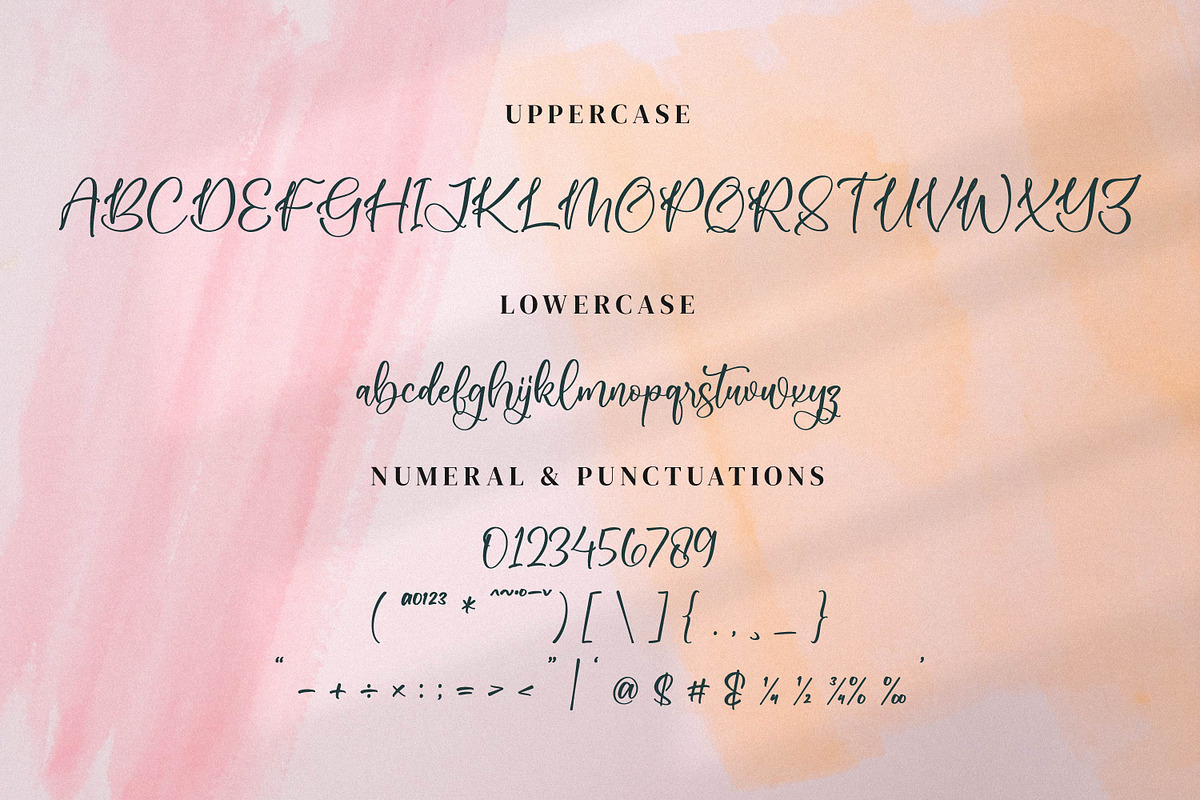 UPPERCASE
ABCDEFGHIJKLMOPQRSTUVWXYZ
LOWERCASE
abcdefghijklmnopqrstuvwxyz
NUMERAL & PUNCTUATIONS
0123456789
( a0123 * ^~·o–ˇ ) [ \ ] { . , ¸ _ }
“ – + ÷ × : ; = > < ” | ‘ @ $ # ₡ ¼ ½ ¾ % ‰ ’